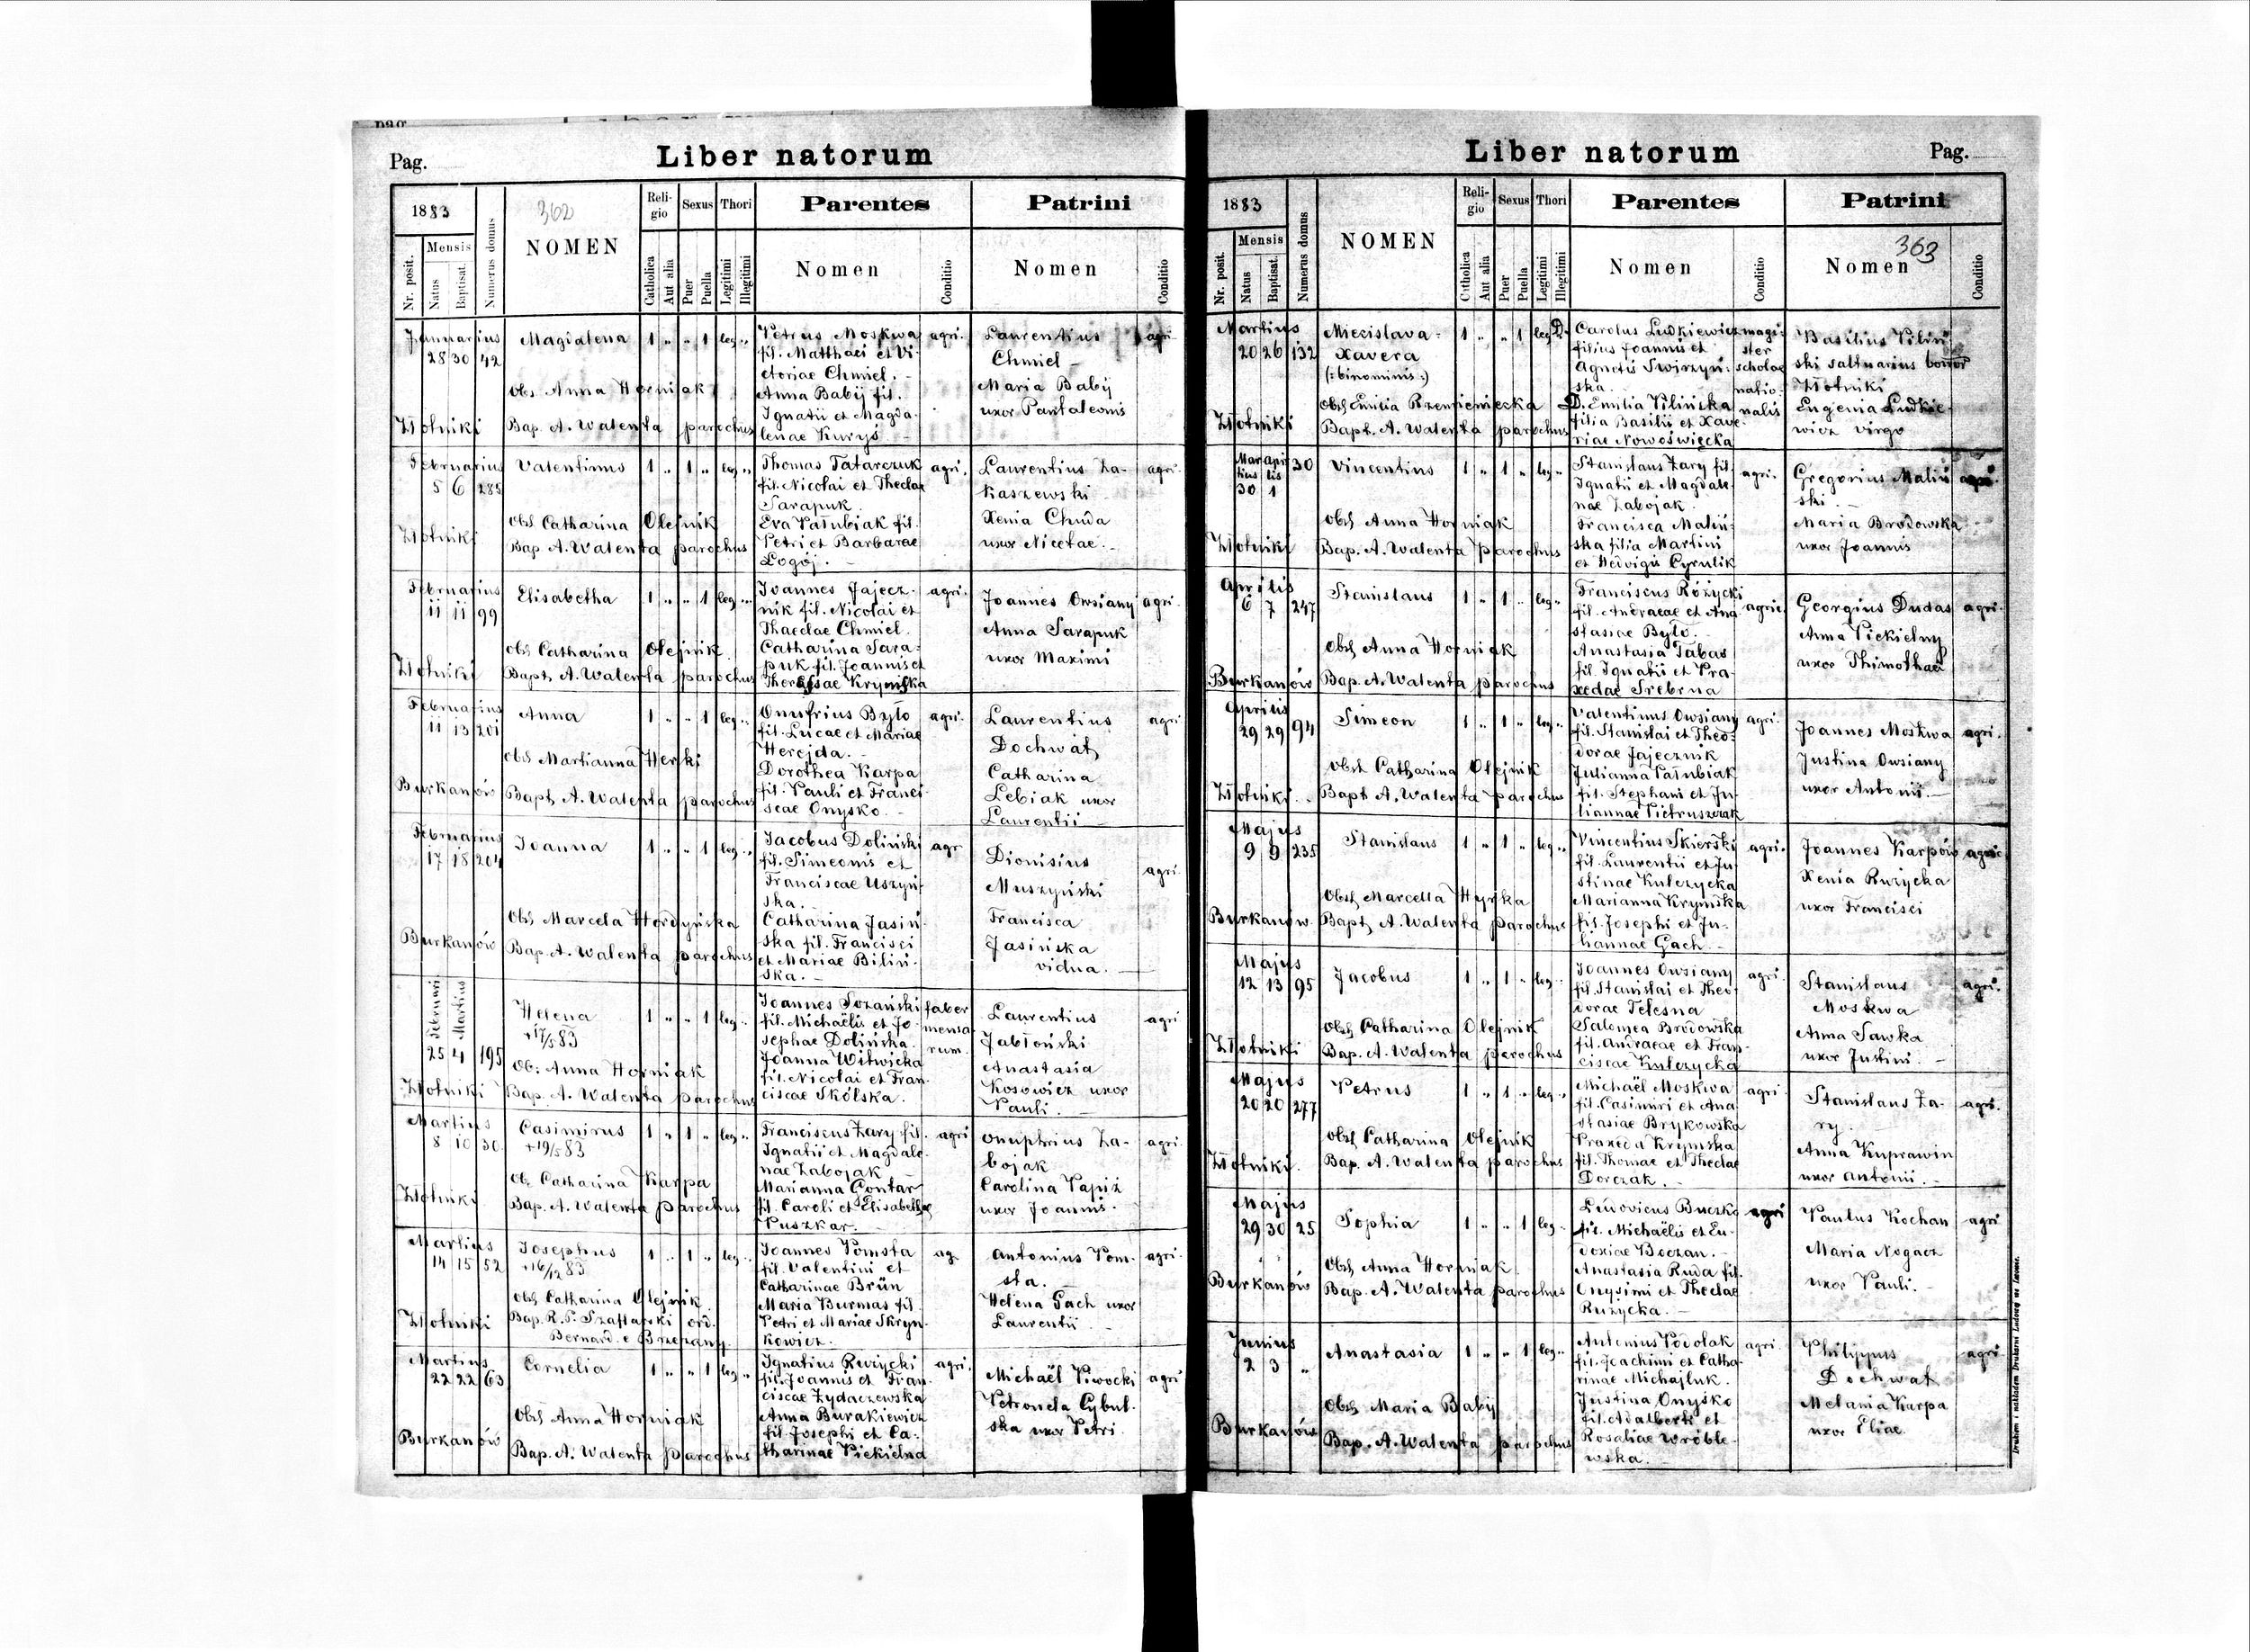 Pag.
Liber natorum
1883
362
Nr. posit.
Mensis
Natus
Baptisat.
Numerus domus
NOMEN
Reli-
gio
Catholica
Aut alia
Sexus
Puer
Puella
Thori
Legitimi
Illegitimi
Parentes
Nomen
Conditio
Patrini
Nomen
Conditio
Januarius
28 30 42
Złotniki
Magdalena
Obs. Anna Horniak
Bap. A. Walenta parochus
1 „ „ 1 leg „
Petrus Moskwa
fil. Matthaei et Vi-
ctoriae Chmiel. -
Anna Babij fil.
Ignatii et Magda-
lenae Kuryś -
agri.
Laurentius
Chmiel -
Maria Babij
uxor Pantaleonis
agri.
Februarius
5 6 285
Złotniki
Valentinus
Obs Catharina Olejnik
Bap. A. Walenta parochus
1 „ 1 „ leg „
Thomas Tatarczuk
fil. Nicolai et Theclae
Sarapuk.
Eva Pałubiak fil.
Petri et Barbarae
Łogój. -
agri.
Laurentius Za-
kaszewski
Xenia Chuda
uxor Nicetae. -
agri.
Februarius
11 11 99
Złotniki
Elisabetha
Obs Catharina Olejnik
Bapt. A. Walenta parochus
1 „ „ 1 leg „
Joannes Jajecz-
nik fil. Nicolai et
Thaeclae Chmiel.
Catharina Sara-
puk fil. Joannis et
Theresae Krymska
agri.
Joannes Owsiany
Anna Sarapuk
uxor Maximi
agri.
Februarius
11 13 201
Burkanów
Anna
Obs Martianna Herski
Bapt. A. Walenta parochus
1 „ „ 1 leg „
Onufrius Było
fil. Lucae et Mariae
Herejda. -
Dorothea Karpa
fil. Pauli et Franci-
scae Onysko. -
agri.
Laurentius
Dochwat
Catharina
Lebiak uxor
Laurentii -
agri
Februarius
17 18 204
Burkanów
Joanna
Obs Marcela Hordyńska
Bap. A. Walenta parochus
1 „ „ 1 leg „
Jacobus Doliński
fil. Simeonis et
Franciscae Uszyń-
ska. -
Catharina Jasiń-
ska fil. Francisci
et Mariae Biliń-
ska. -
agr
Dionisius
Muszyński
Francisca
Jasińska
vidua. -
agri.
Februari
Martius
25 4 195
Złotniki
Helena
+17/5 83
Ob: Anna Horniak
Bap. A. Walenta parochus
1 „ „ 1 leg „
Joannes Sozański
fil. Michaëlis et Jo-
sephae Dolińska.
Joanna Witwicka
fil. Nicolai et Fran-
ciscae Skólska.
faber
mensa
rum
Laurentius
Jabłoński
Anastasia
Kosowicz uxor
Pauli. -
agri
Martius
8 10 30
Złotniki
Casimirus
+19/5 83
Ob. Catharina Karpa
Bap. A. Walenta Parochus
1 „ 1 „ leg „
Franciscus Żary fil.
Ignatii et Magdale-
nae Zabojak -
Marianna Gontar
fil. Caroli et Elisabethae
Puszkar. -
agri
Onuphrius Za-
bojak
Carolina Papiż
uxor Joannis.
agri.
Martius
14 15 52
Złotniki
Josephus
+16/12 83
Obs Catharina Olejnik
Bap. R. P. Szaflarski ord.
Bernard. e Brzezany.
1 „ 1 „ leg „
Joannes Pomsta
fil. Valentini et
Catharinae Brün
Maria Burmas fil.
Petri et Mariae Skryn-
kowicz.
ag.
Antonius Pom-
sta. -
Helena Gach uxor
Laurentii -
agri.
Martius
22 22 63
Burkanów
Cornelia
Obs Anna Horniak
Bap. A. Walenta parochus
1 „ „ 1 leg „
Ignatius Rużycki
fil. Joannis et Fran-
ciscae Żydaczewska
Anna Burakiewicz
fil. Josephi et Ca-
tharinae Piekielna
agri.
Michaël Piwocki
Petronela Cybul-
ska uxor Petri.
agri
Liber natorum
Pag.
1883
Nr. posit.
Mensis
Natus
Baptisat.
Numerus domus
NOMEN
Reli-
gio
Catholica
Aut alia
Sexus
Puer
Puella
Thori
Legitimi
Illegitimi
Parentes
Nomen
Conditio
Patrini
363
Nomen
Conditio
Martius
20 26 132
Złotniki
Miecislava-
Xavera
(: binominis :)
Obs Emilia Rzemieniecka
Bapt. A. Walenta parochus
1 „ „ 1 leg „
D. Carolus Ludkiewicz
filius Joannis et
Agnetis Swirzyń-
ska.
D. Emilia Pilińska
filia Basilii et Xave-
riae Nowoświęcka
magi-
ster
scholae
natio-
nalis
Basilius Piliń-
ski saltuarius
Złotniki
Eugenia Ludkie-
wicz virgo
Mar Apri
tius lis
30 1 30
Złotniki
Vincentius
Obs Anna Horniak
Bap. A. Walenta Parochus
1 „ 1 „ leg „
Stanislaus Żary fil.
Ignatii et Magdale-
nae Zabojak.
Francisca Maliń-
ska filia Martini
et Hedvigis Cyrulik
agri.
Gregorius Maliń-
ski. -
Maria Brodowska
uxor Joannis
agri.
Aprilis
6 7 247
Burkanów
Stanislaus
Obs Anna Horniak
Bap. A. Walenta parochus
1 „ 1 „ leg „
Franciscus Różycki
fil. Andraeae et Ana-
stasiae Było. -
Anastasia Tabas
fil. Ignatii et Pra-
xedae Srebrna
agric.
Georgius Dudas
Anna Piekielny
uxor Thimothaei
agri.
Aprilis
29 29 94
Złotniki.
Simeon
Obst Catharina Olejnik
Bapt A. Walenta parochus
1 „ 1 „ leg „
Valentinus Owsiany
fil. Stanislai et Theo-
dorae Jajecznik
Julianna Pałubiak
fil. Stephani et Ju-
liannae Pietruszczak
agri.
Joannes Moskwa
Justina Owsiany
uxor Antonii. -
agri.
Majus
9 9 235
Burkanów
Stanislaus
Obst Marcella Hyrka
Bapt. A. Walenta parochus
1 „ 1 „ leg „
Vincentius Skierski
fil. Laurentii et Ju-
stinae Kulczycka
Marianna Krymska
fil. Josephi et Ju-
liannae Gach. -
agri.
Joannes Karpów
Xenia Rużycka
uxor Francisci
agric
Majus
12 13 95
Złotniki
Jacobus
Obst Catharina Olejnik
Bap. A. Walenta parochus
1 „ 1 „ leg „
Joannes Owsiany
fil. Stanislai et Theo-
dorae Telesna
Salomea Brodowska
fil. Andraeae et Fran-
ciscae Kulczycka
agri.
Stanislaus
Moskwa
Anna Sawka
uxor Justini. -
agri.
Majus
20 20 277
Złotniki.
Petrus
Obst Catharina Olejnik
Bap. A. Walenta parochus
1 „ 1 „ leg „
Michaël Moskwa
fil. Casimiri et Ana-
stasiae Brykowska
Praxeda Krymska
fil. Thomae et Theclae
Dorczak. -
agri.
Stanislaus Ża-
ry. -
Anna Kuprawin
uxor Antonii. -
agri.
Majus
29 30 25
Burkanów
Sophia
Obst Anna Horniak
Bap. A. Walenta parochus
1 „ „ 1 leg „
Ludovicus Buczko
fil. Michaëlis et Eu-
doxiae Boczan. -
Anastasia Ruda fil.
Onysimi et Theclae
Rużycka. -
agri
Paulus Kochan
Maria Nogacz
uxor Pauli.
agri
Junius
2 3 „
Burkanów
Anastasia
Obst Maria Babij
Bap. A. Walenta parochus
1 „ „ 1 leg „
Antonius Podolak
fil. Joachimi et Catha-
rinae Michajluk.
Justina Onyśko
fil. Adalberti et
Rosaliae Wróble-
wska. -
agri.
Philippus
Dochwat
Melania Karpa
uxor Eliae.
agri